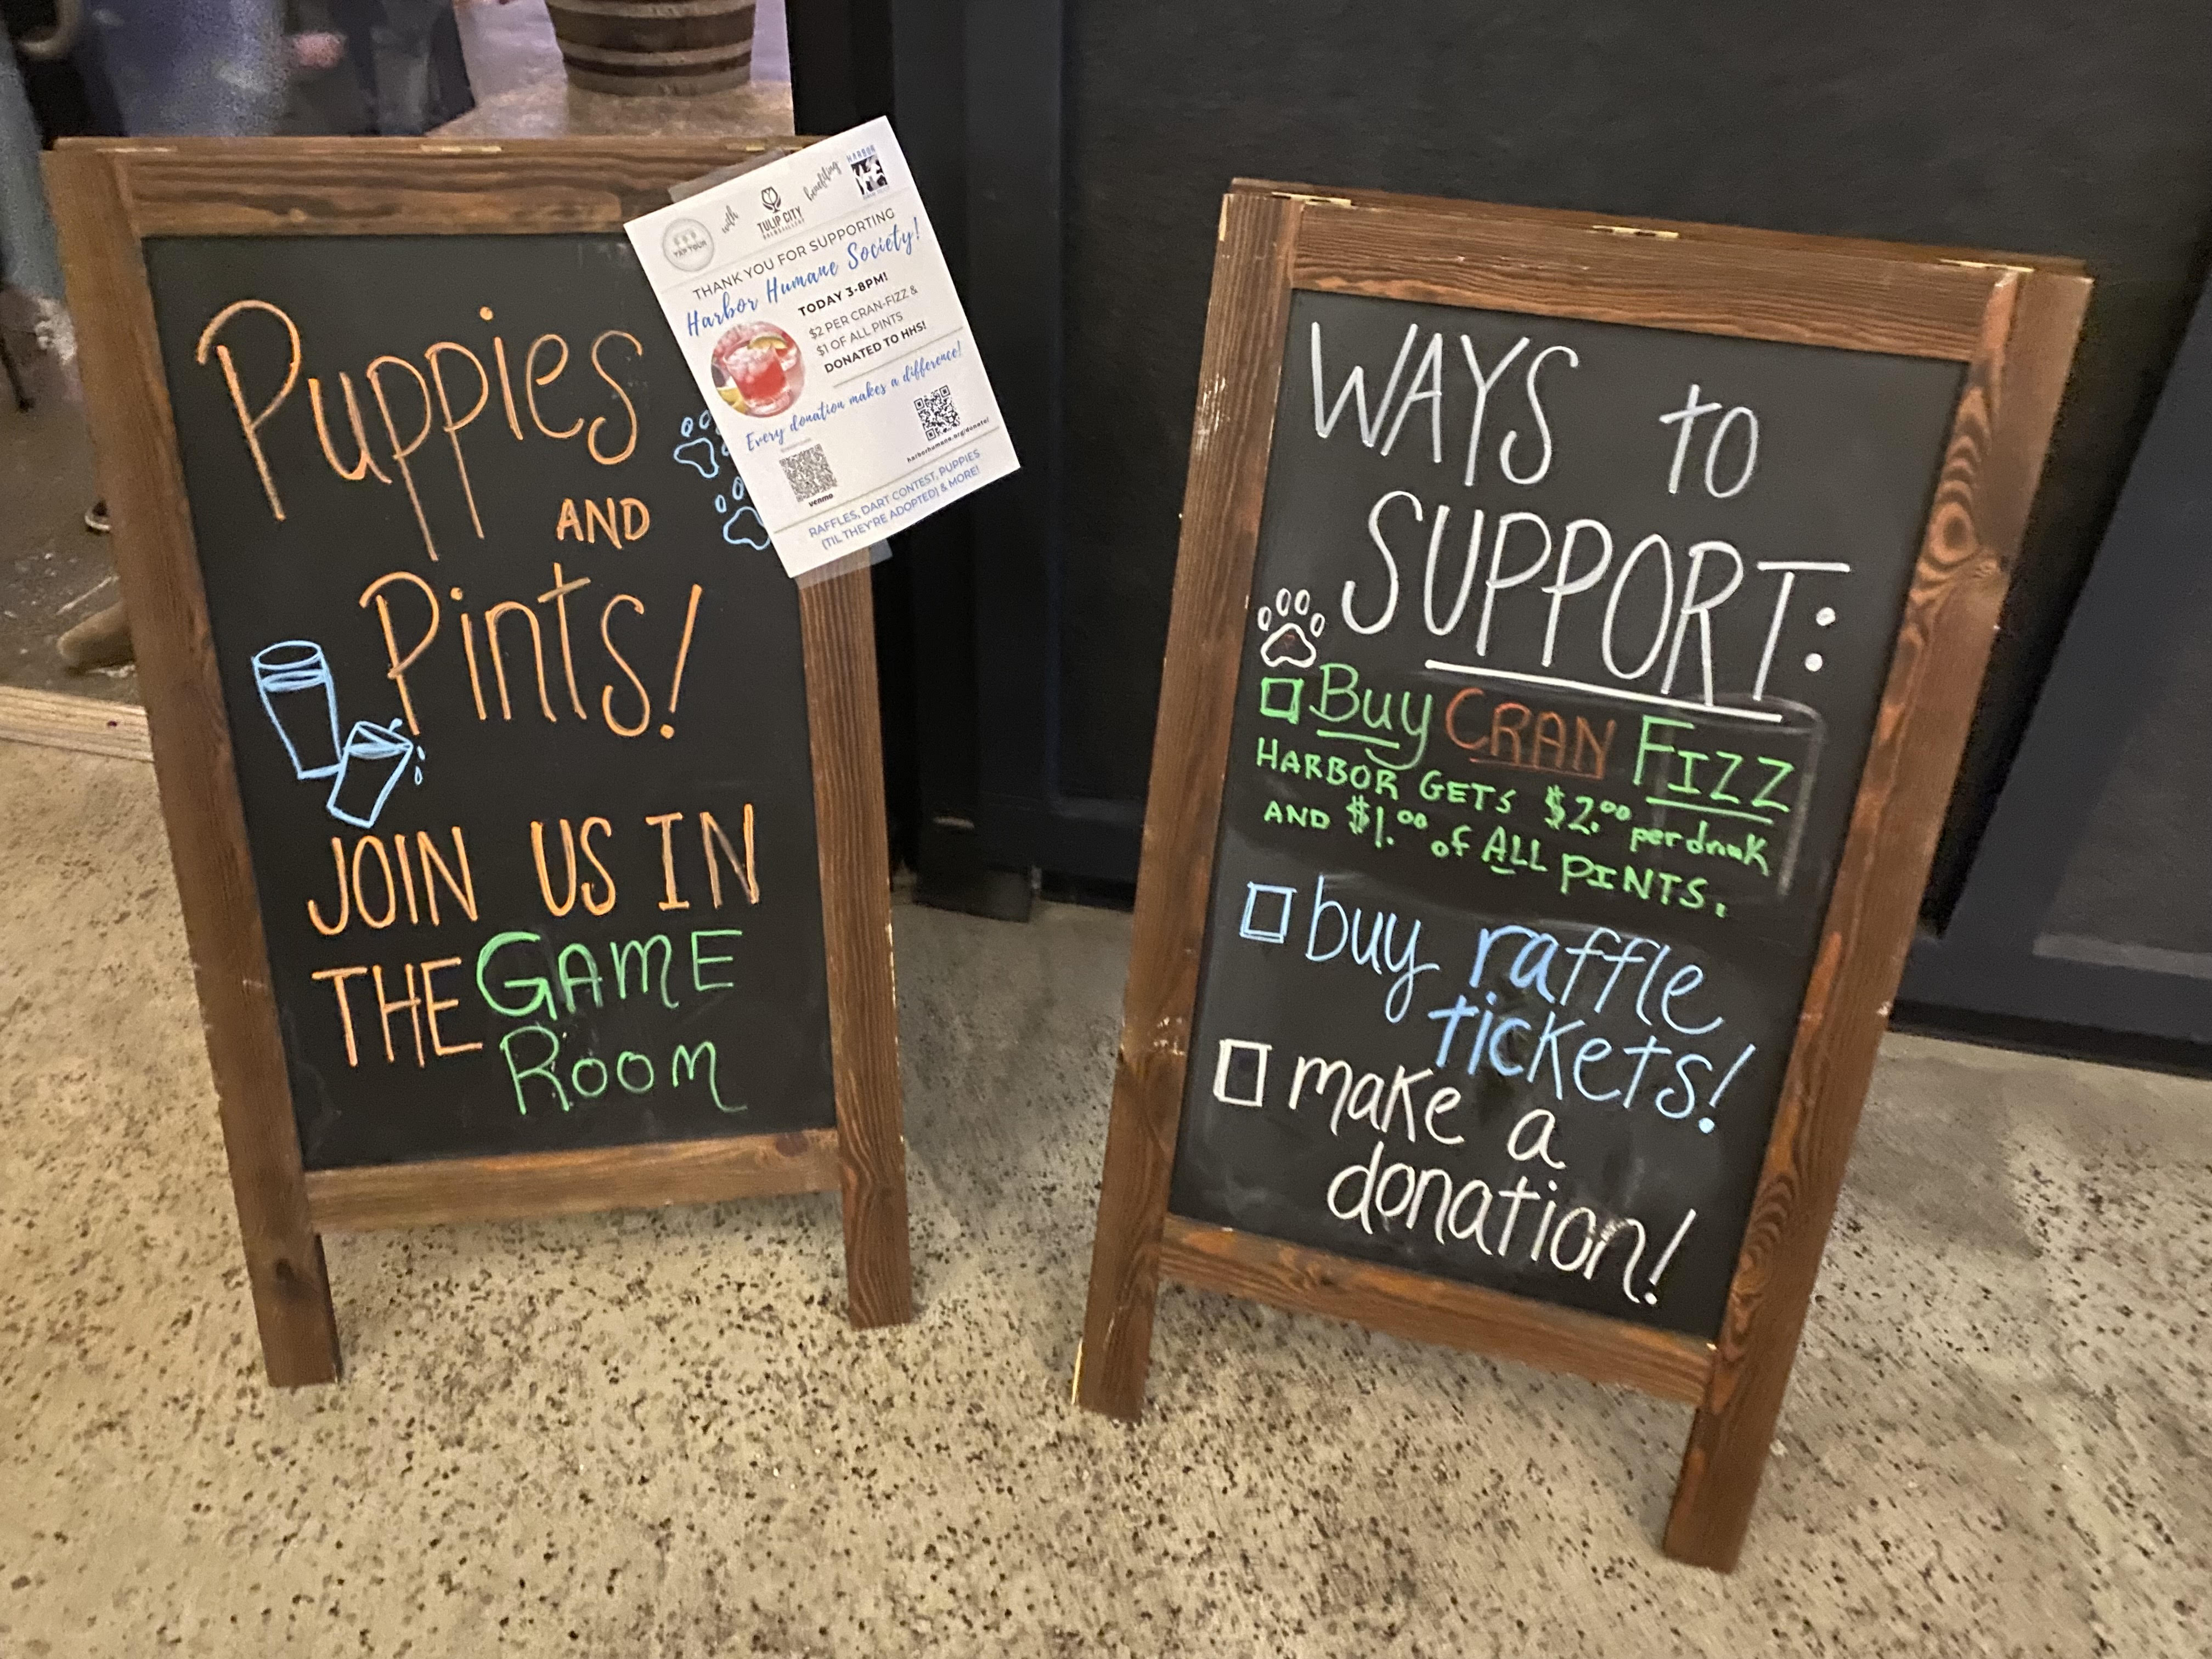 Puppies
AND
Pints!
JOIN US IN
THE GAME
ROOM
with
TULIP CITY
benefiting
HARBOR
THANK YOU FOR SUPPORTING
Harbor Humane Society!
TODAY 3-8PM!
$2 PER CRAN-FIZZ &
$1 OF ALL PINTS
DONATED TO HHS!
Every donation makes a difference!
venmo
harborhumane.org/donate/
RAFFLES, DART CONTEST, PUPPIES
(TIL THEY'RE ADOPTED) & MORE!
WAYS to
SUPPORT:
Buy CRAN FIZZ
HARBOR GETS $2.00 per drink
AND $1.00 of ALL PINTS.
buy raffle
tickets!
make a
donation!